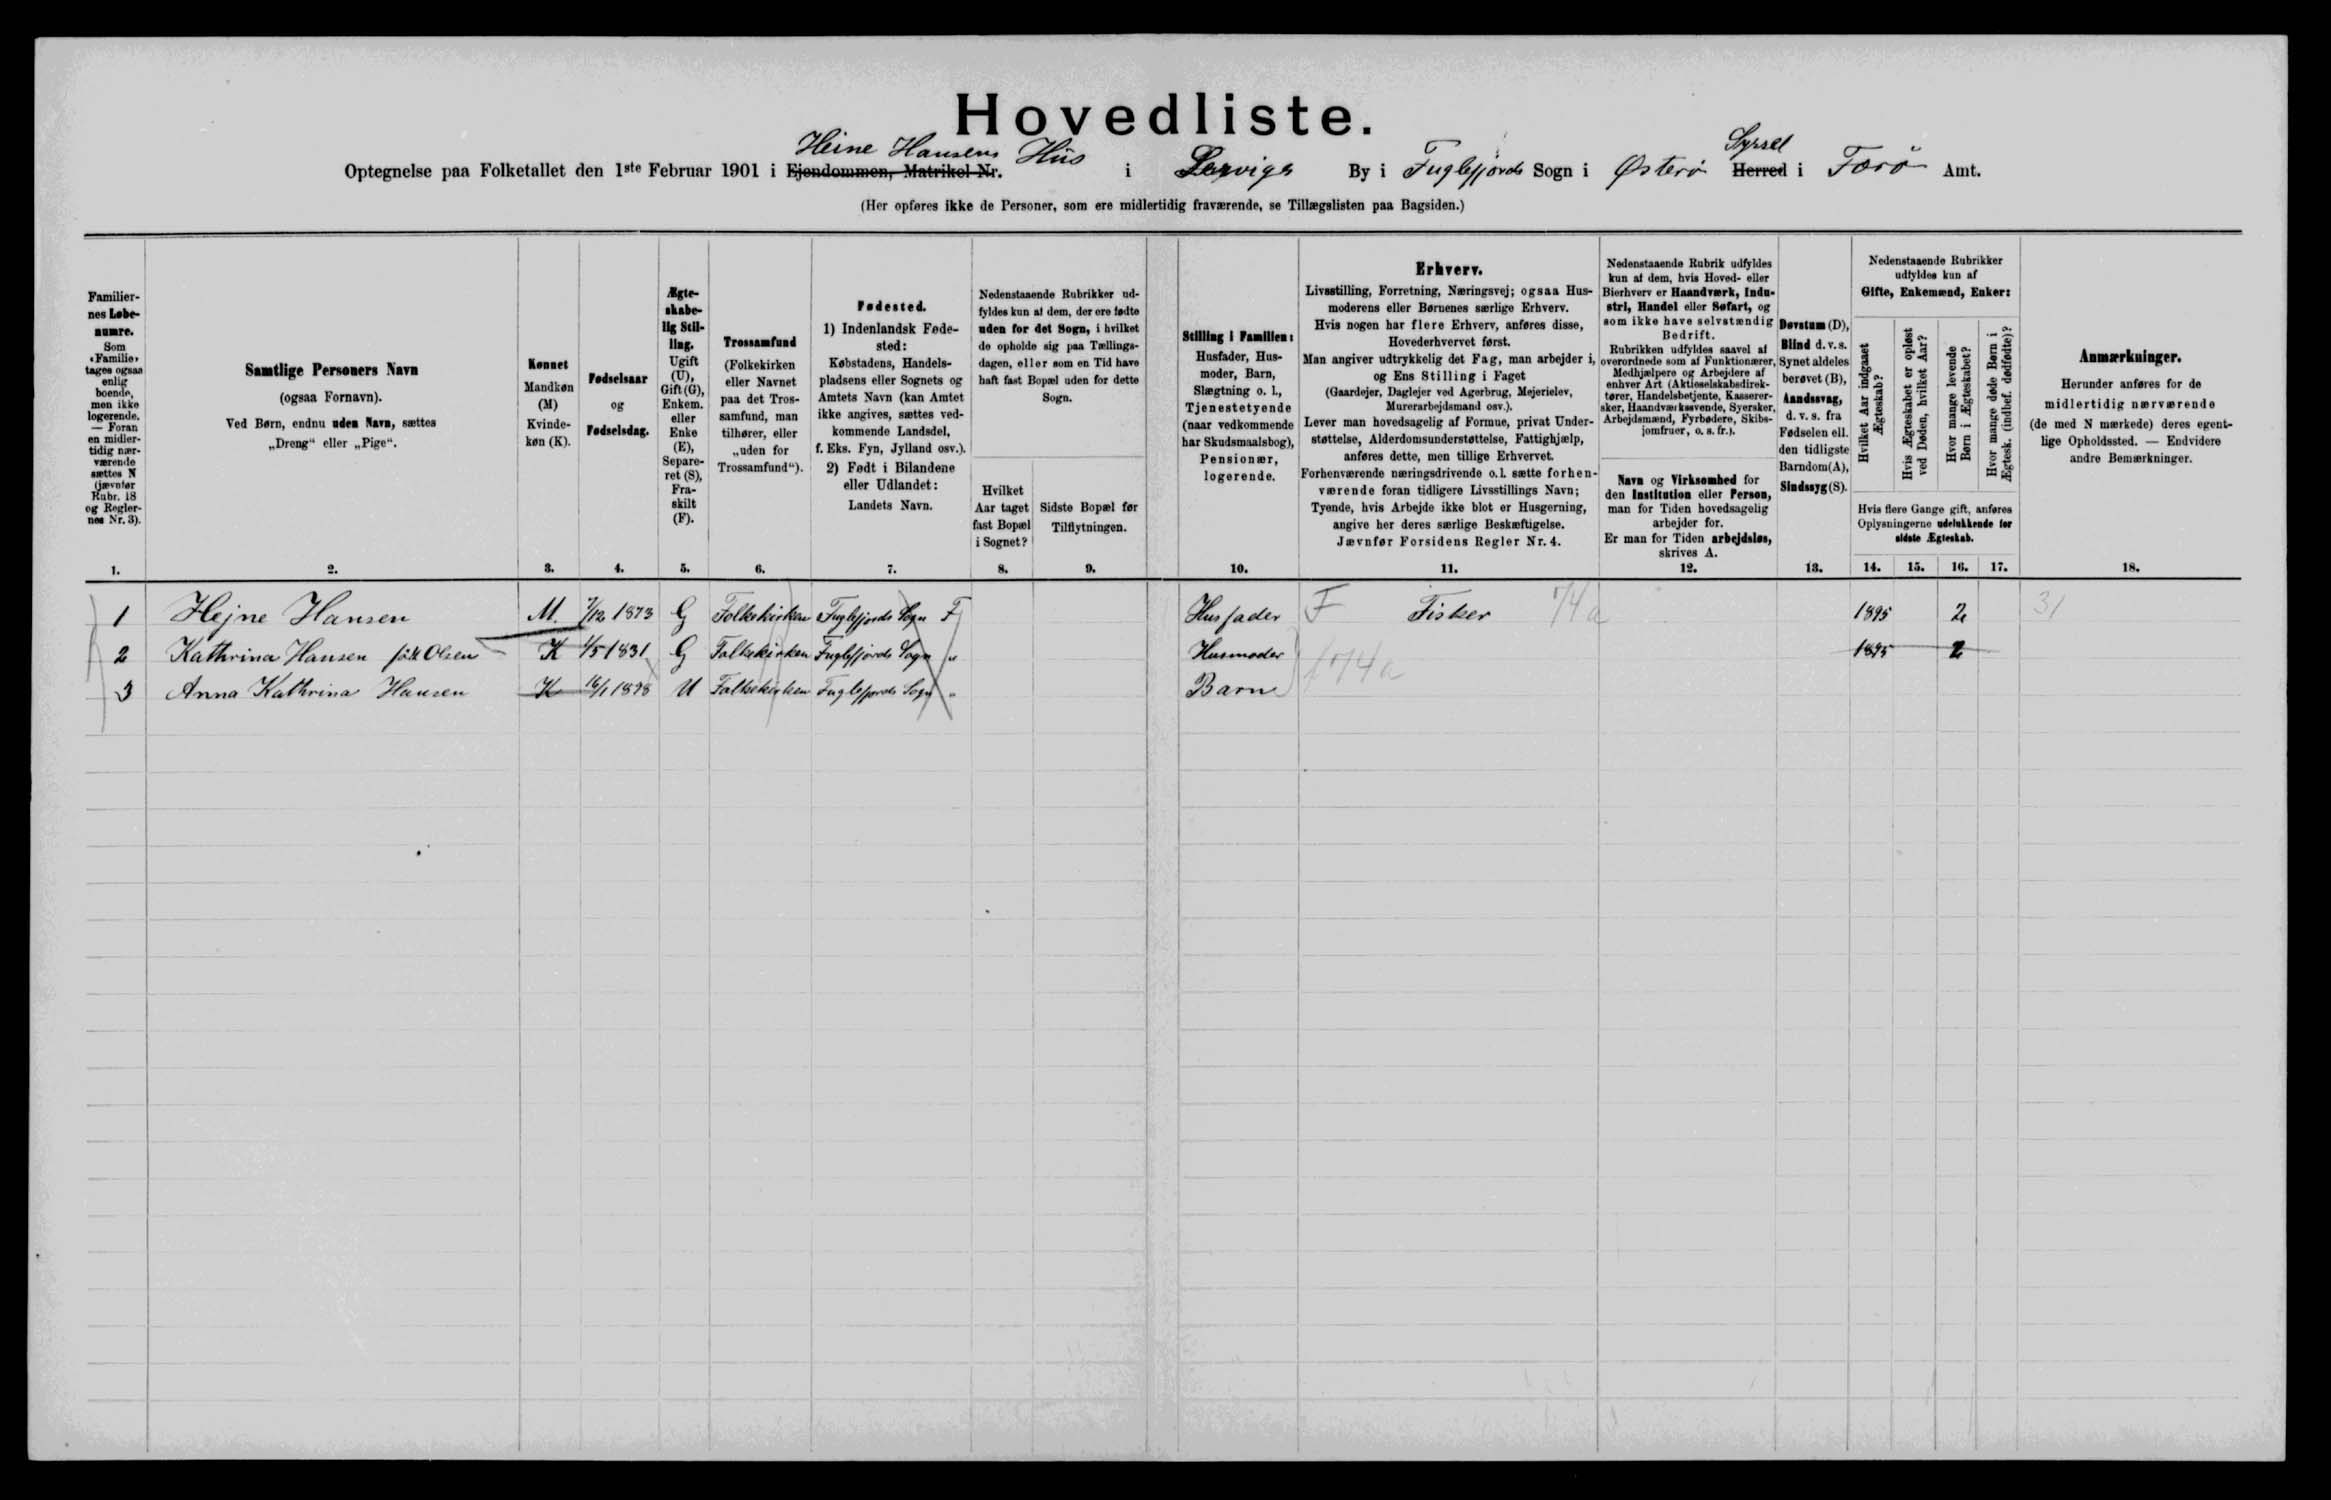 Hovedliste.
Heine Hansens Hus
Syssel
Optegnelse paa Folketallet den 1ste Februar 1901 i Ejendommen, Matrikel-Nr. i Lervigs By i Fuglefjords Sogn i Østerø Herred i Færø Amt.
(Her opføres ikke de Personer, som ere midlertidig fraværende, se Tillægslisten paa Bagsiden.)
Familier-
nes Løbe-
numre.
Som
«Familie»
tages ogsaa
enlig
boende,
men ikke
logerende.
— Foran
en midler-
tidig nær-
værende
sættes N
(jævnfør
Rubr. 18
og Regler-
nes Nr. 3).
1.
Samtlige Personers Navn
(ogsaa Fornavn).
Ved Børn, endnu uden Navn, sættes
„Dreng“ eller „Pige“.
2.
Kønnet
Mandkøn
(M)
Kvinde-
køn (K).
3.
Fødselsaar
og
Fødselsdag.
4.
Ægte-
skabe-
lig Stil-
ling.
Ugift
(U),
Gift (G),
Enkem.
eller
Enke
(E),
Separe-
ret (S),
Fra-
skilt
(F).
5.
Trossamfund
(Folkekirken
eller Navnet
paa det Tros-
samfund, man
tilhører, eller
„uden for
Trossamfund“).
6.
Fødested.
1) Indenlandsk Føde-
sted:
Købstadens, Handels-
pladsens eller Sognets og
Amtets Navn (kan Amtet
ikke angives, sættes ved-
kommende Landsdel,
f. Eks. Fyn, Jylland osv.).
2) Født i Bilandene
eller Udlandet:
Landets Navn.
7.
Nedenstaaende Rubrikker ud-
fyldes kun af dem, der ere fødte
uden for det Sogn, i hvilket
de opholde sig paa Tællings-
dagen, eller som en Tid have
haft fast Bopæl uden for dette
Sogn.
Hvilket
Aar taget
fast Bopæl
i Sognet?
8.
Sidste Bopæl før
Tilflytningen.
9.
Stilling i Familien:
Husfader, Hus-
moder, Barn,
Slægtning o. l.,
Tjenestetyende
(naar vedkommende
har Skudsmaalsbog),
Pensionær,
logerende.
10.
Erhverv.
Livsstilling, Forretning, Næringsvej; ogsaa Hus-
moderens eller Børnenes særlige Erhverv.
Hvis nogen har flere Erhverv, anføres disse,
Hovederhvervet først.
Man angiver udtrykkelig det Fag, man arbejder i,
og Ens Stilling i Faget
(Gaardejer, Daglejer ved Agerbrug, Mejerielev,
Murerarbejdsmand osv.).
Lever man hovedsagelig af Formue, privat Under-
støttelse, Alderdomsunderstøttelse, Fattighjælp,
anføres dette, men tillige Erhvervet.
Forhenværende næringsdrivende o. l. sætte forhen-
værende foran tidligere Livsstillings Navn;
Tyende, hvis Arbejde ikke blot er Husgerning,
angive her deres særlige Beskæftigelse.
Jævnfør Forsidens Regler Nr. 4.
11.
Nedenstaaende Rubrik udfyldes
kun af dem, hvis Hoved- eller
Bierhverv er Haandværk, Indu-
stri, Handel eller Søfart, og
som ikke have selvstændig
Bedrift.
Rubrikken udfyldes saavel af
overordnede som af Funktionærer,
Medhjælpere og Arbejdere af
enhver Art (Aktieselskabsdirek-
tører, Handelsbetjente, Kasserer-
sker, Haandværkssvende, Syersker,
Arbejdsmænd, Fyrbødere, Skibs-
jomfruer, o. s. fr.).
Navn og Virksomhed for
den Institution eller Person,
man for Tiden hovedsagelig
arbejder for.
Er man for Tiden arbejdsløs,
skrives A.
12.
Døvstum (D),
Blind d. v. s.
Synet aldeles
berøvet (B),
Aandssvag,
d. v. s. fra
Fødselen ell.
den tidligste
Barndom (A),
Sindssyg (S).
13.
Nedenstaaende Rubrikker
udfyldes kun af
Gifte, Enkemænd, Enker:
Hvilket Aar indgaaet
Ægteskab?
Hvis Ægteskabet er opløst
ved Døden, hvilket Aar?
Hvor mange levende
Børn i Ægteskabet?
Hvor mange døde Børn i
Ægtesk. (indbef. dødfødte)?
Hvis flere Gange gift, anføres
Oplysningerne udelukkende for
sidste Ægteskab.
14. 15. 16. 17.
Anmærkninger.
Herunder anføres for de
midlertidig nærværende
(de med N mærkede) deres egent-
lige Opholdssted. — Endvidere
andre Bemærkninger.
18.
1 Hejne Hansen M. 7/12 1873 G Folkekirken Fuglefjords Sogn F Husfader F Fisker 74a 1895 2 31
2 Kathrina Hansen født Olsen K 1/5 1831 G Folkekirken Fuglefjords Sogn „ Husmoder f 74a 1895 2
3 Anna Kathrina Hansen K 16/1 1898 U Folkekirken Fuglefjords Sogn „ Barn